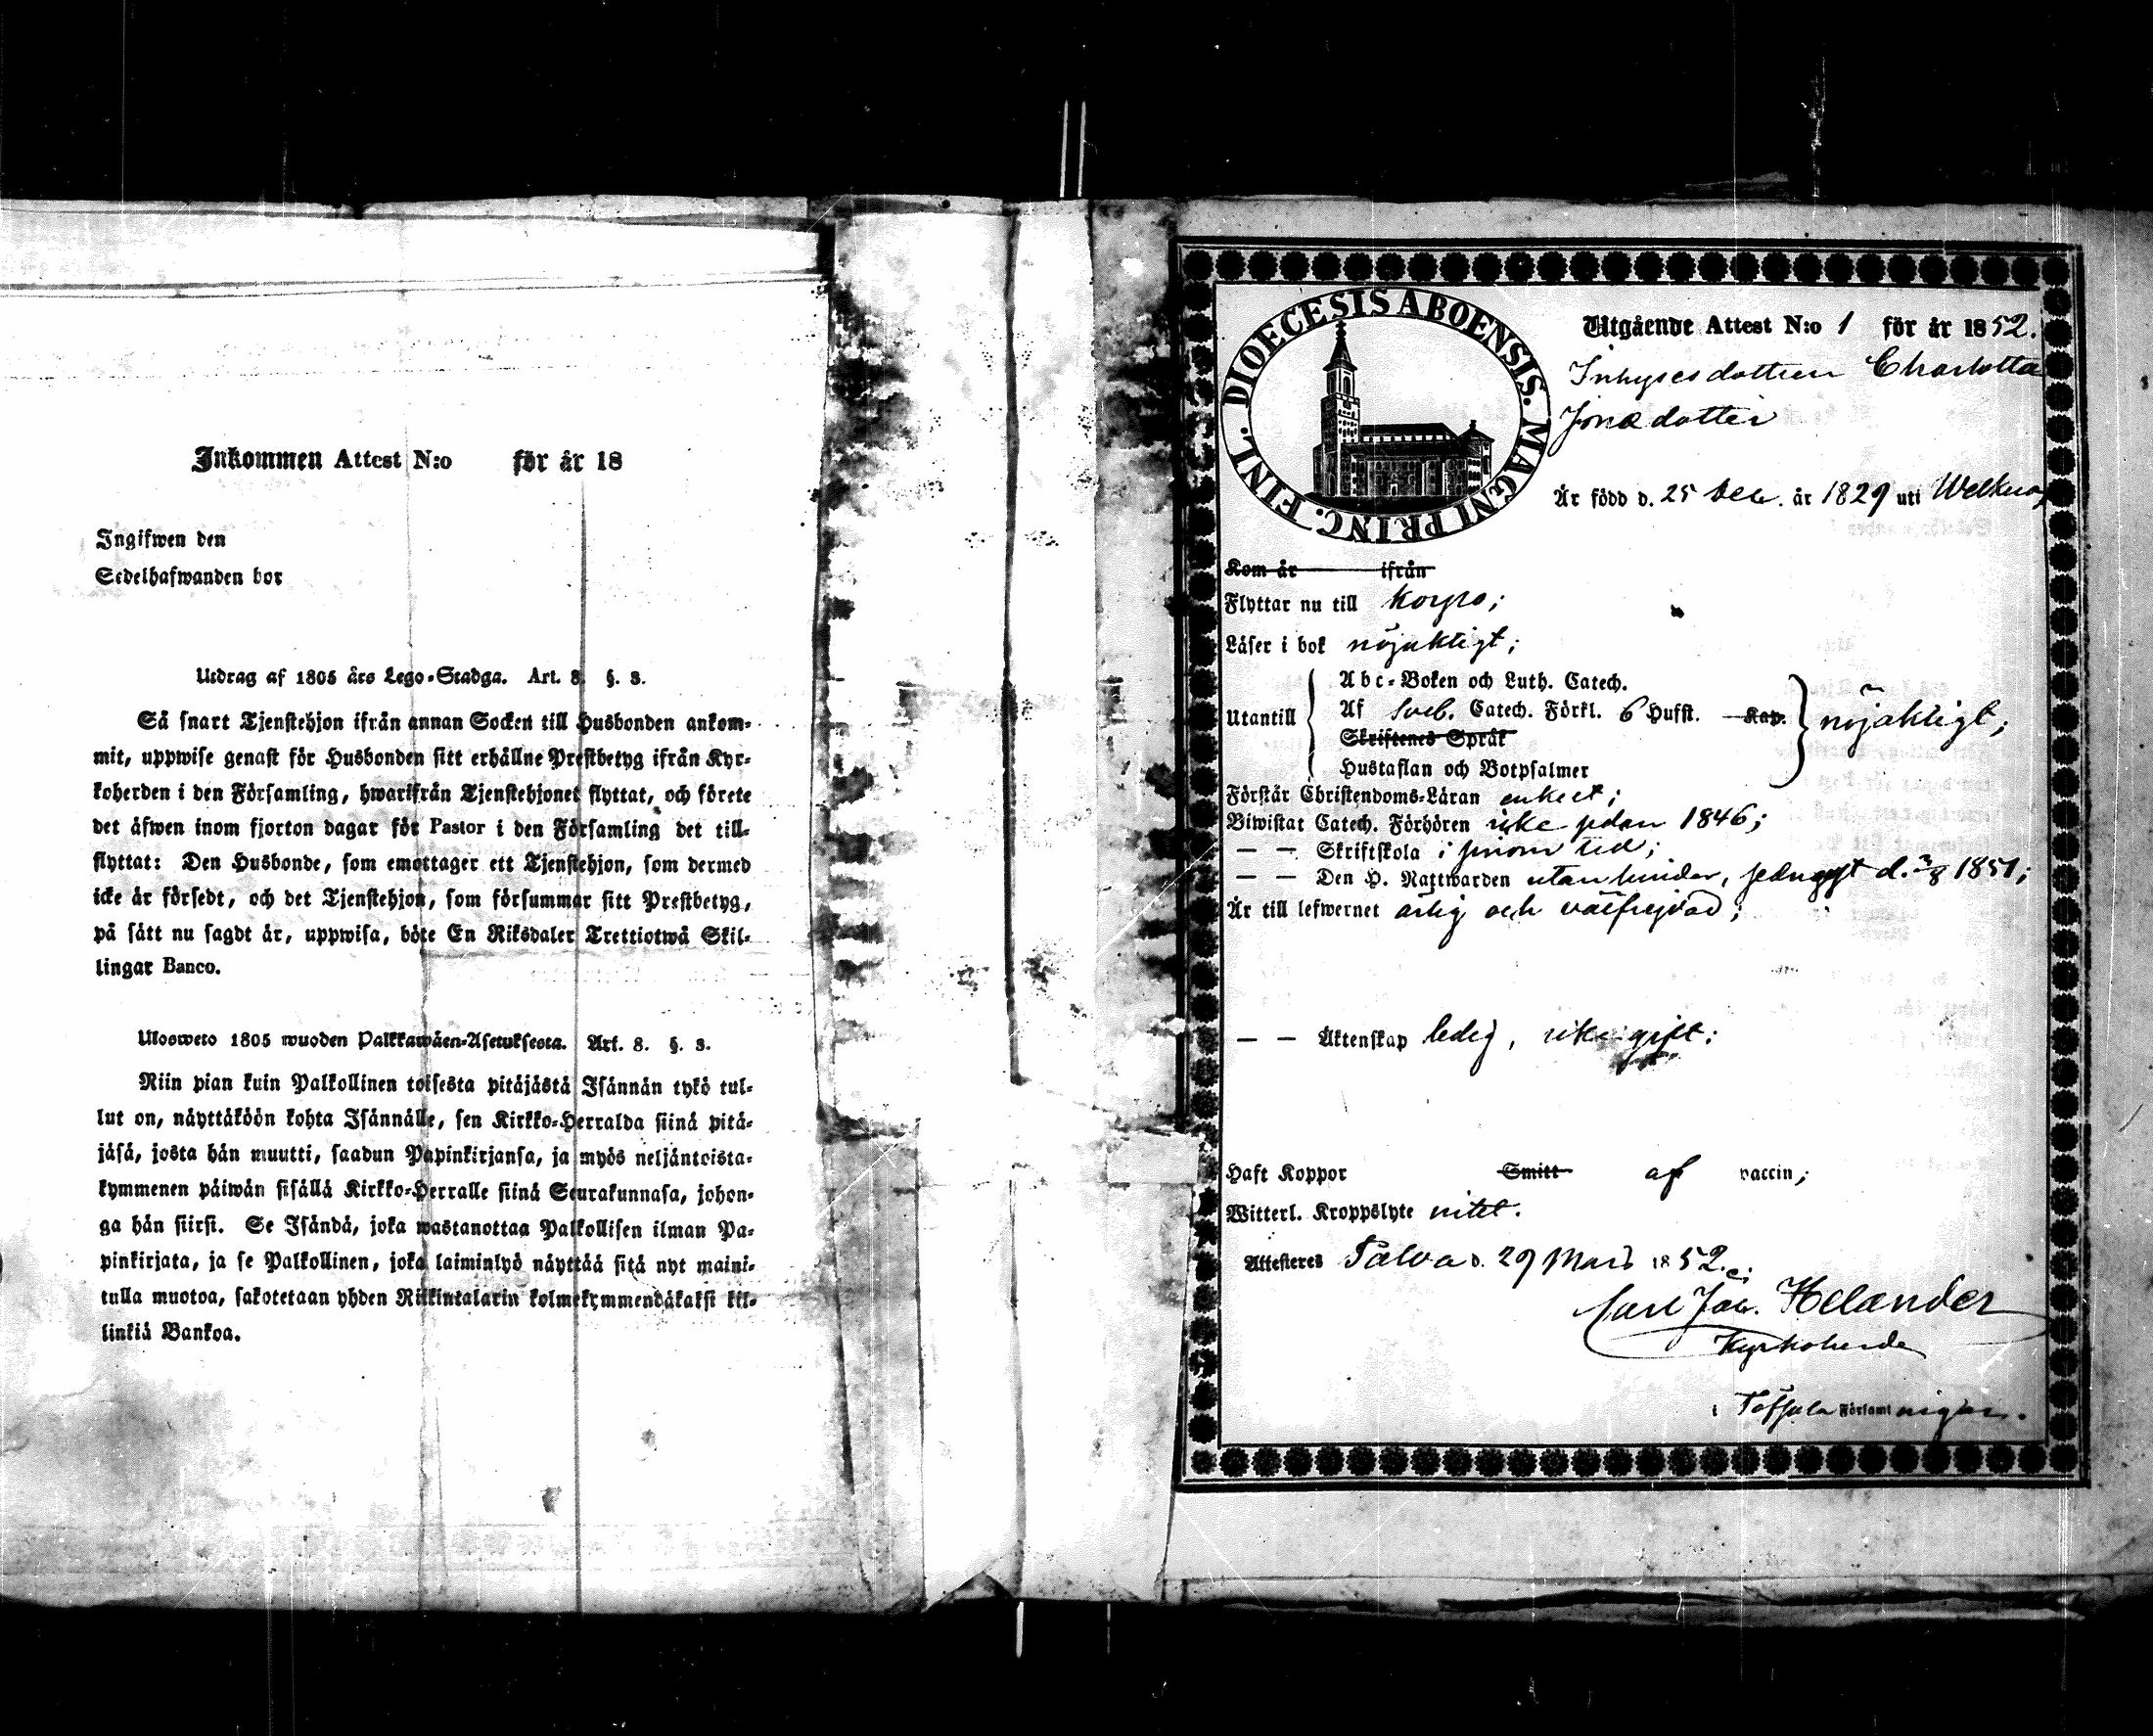 Inkommen Attest N:o för år 18
Ingifwen den
Sedelhafwanden bor
Utdrag af 1805 års Lego-Stadga. Art. 8. §. 3.
Så snart Tjenstehjon ifrån annan Socken till Husbonden ankom-
mit, uppwise genast för Husbonden sitt erhållne Prestbetyg ifrån Kyr-
koherden i den Församling, hwarifrån Tjenstehjonet flyttat, och förete
det äfwen inom fjorton dagar för Pastor i den Församling det till-
flyttat: Den Husbonde, som emottager ett Tjenstehjon, som dermed
icke är försedt, och det Tjenstehjon, som försummar sitt Prestbetyg,
på sätt nu sagdt är, uppwisa, böte En Riksdaler Trettiotwå Skil-
lingar Banco.
Ulosweto 1805 wuoden Palkkawäen-Asetuksesta. Art. 8. §. 3.
Niin pian kuin Palkollinen toisesta pitäjästä Isännän tykö tul-
lut on, näyttäköön kohta Isännälle, sen Kirkko-Herralda siinä pitä-
jäsä, josta hän muutti, saadun Papinkirjansa, ja myös neljäntoista-
kymmenen päiwän sisällä Kirkko-Herralle siinä Seurakunnasa, johon-
ga hän siirsi. Se Isändä, joka wastanottaa Palkollisen ilman Pa-
pinkirjata, ja se Palkollinen, joka laiminlyö näyttää sitä nyt maini-
tulla muotoa, sakotetaan yhden Riikintalarin kolmekymmendäkaksi kil-
linkiä Bankoa.
DIOECESIS ABOENSIS. MAGNI PRINC. FINL.
Utgående Attest N:o 1 för år 1852.
Inhysesdottren Charlotta
Jonædotter
Är född d. 25 Dec. år 1829 uti Welkua,
Kom år ifrån
Flyttar nu till Korpo;
Läser i bok nöjaktigt;
Abc-Boken och Luth. Catech.
Utantill Af Sveb. Catech. Förkl. 6 Hufst. Kap. nöjaktigt;
Skriftenes Språk
Hustaflan och Botpsalmer
Förstår Christendoms-Läran enkelt;
Biwistat Catech. Förhören icke sedan 1846;
— — Skriftskola i sinom tid;
— — Den H. Nattwarden utan hinder, sednast d. 1851;
Är till lefwernet ärlig och välfrejdad;
— — Äktenskap ledig, icke gift:
Haft Koppor Smitt af vaccin;
Witterl. Kroppslyte intet.
Attesteres Palva d. 29 Mars 1852.
Carl Jac. Helander
Kyrkoherde
i Töfsala Församlningen.